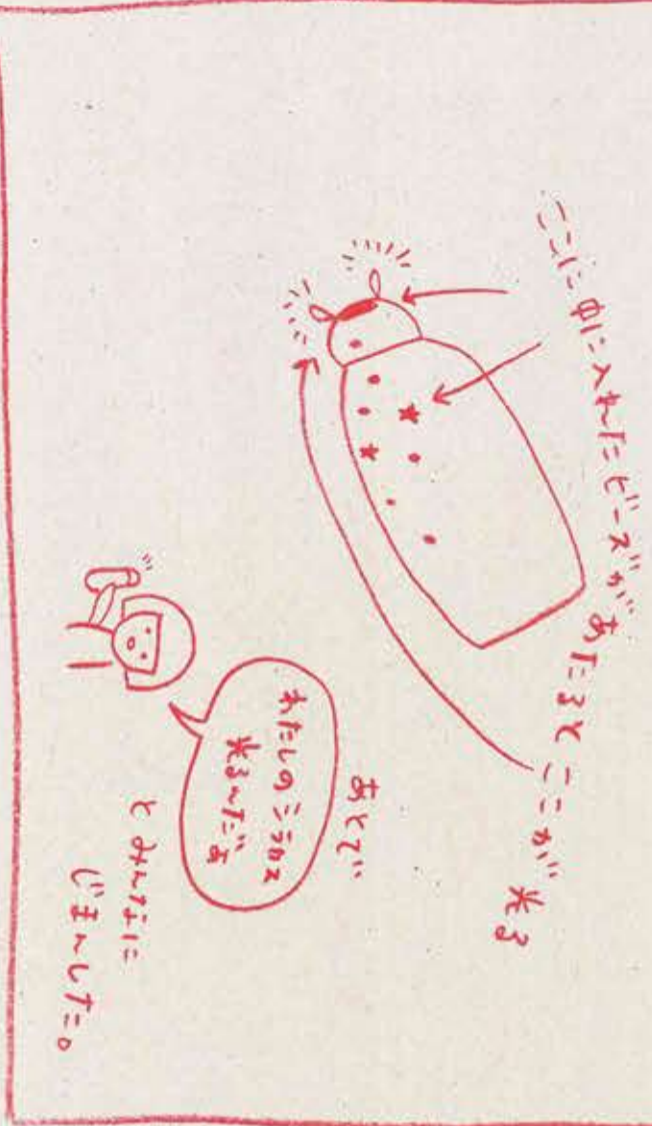 ここに中に入れたビーズがあたるとここが光る
あとで
わたしのミラカス
光るんだよ
とみんなに
じまんした。